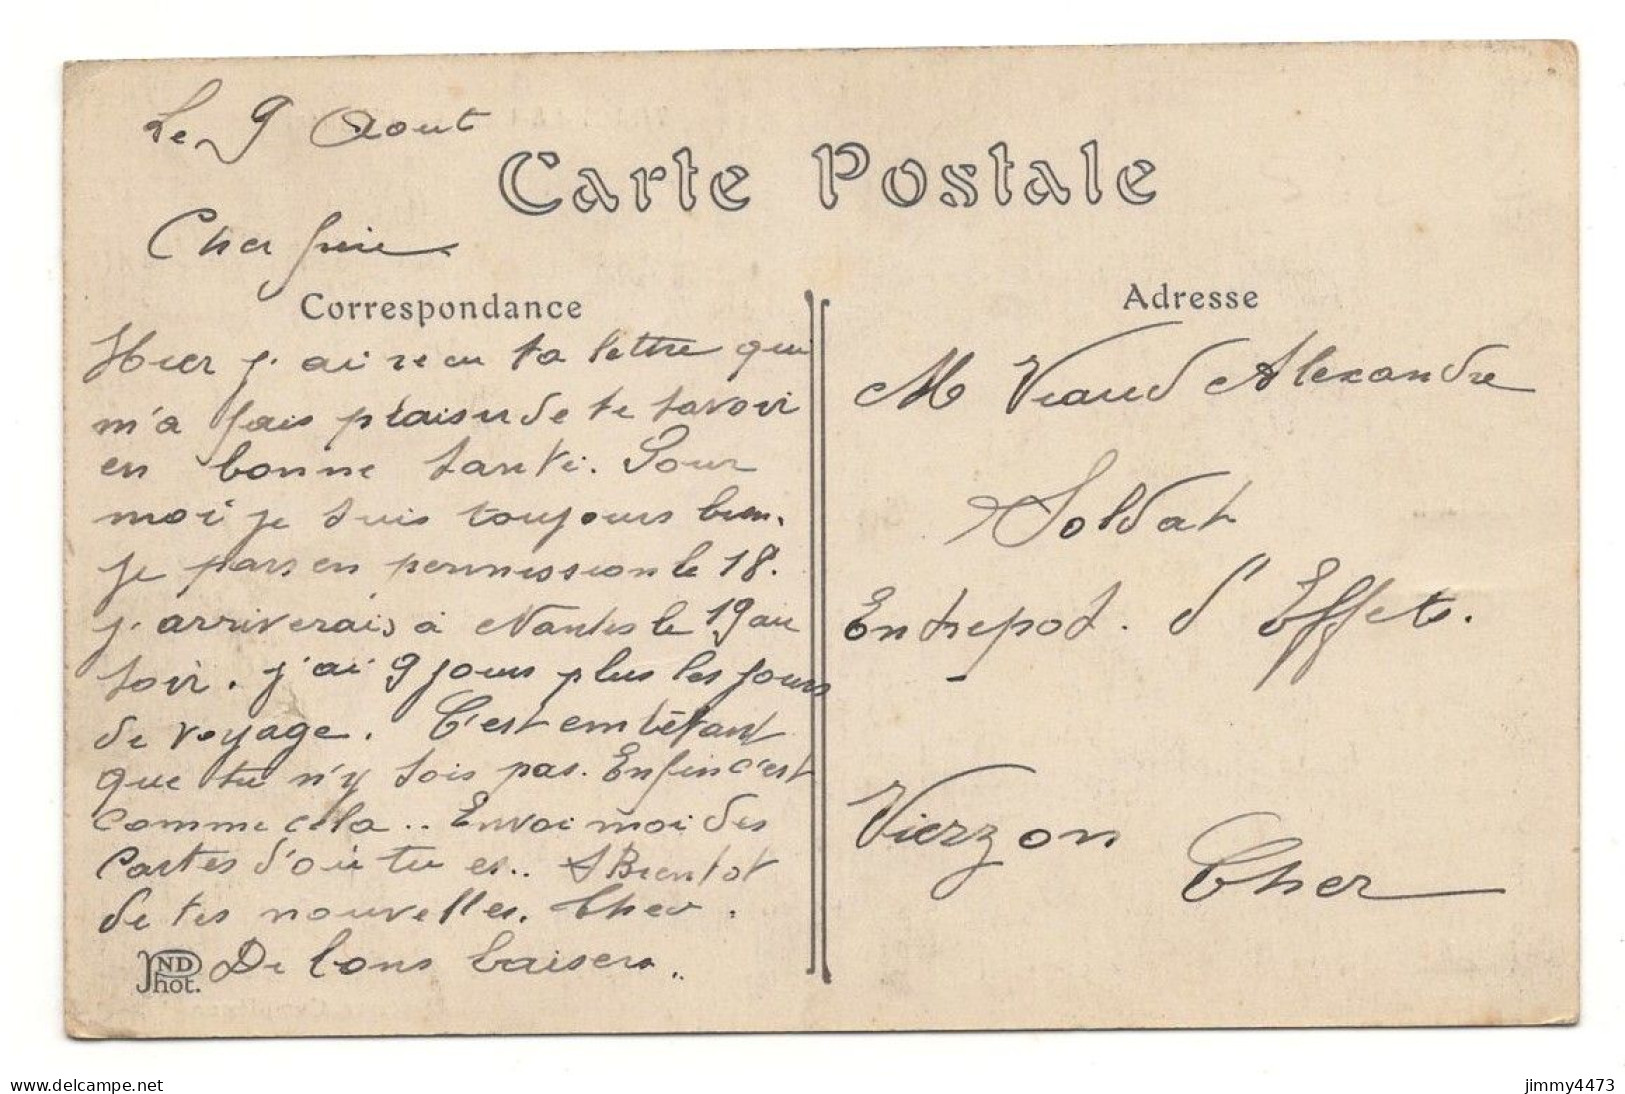 Le 9 Aout
Carte Postale
Cher frère
Correspondance
Hier j'ai recu ta lettre qui
m'a fais plaisir de te savoir
en bonne santé. Pour
moi je suis toujours bien.
je pars en permission le 18.
j'arriverais à Nantes le 19 au
soir. j'ai 9 jours plus les jours
de voyage. C'est embêtant
que tu n'y sois pas. Enfin c'est
comme cela.. Envoi moi des
cartes d'où tu es.. A Bientot
de tes nouvelles.
De bons baisers..
ND
Phot.
Adresse
M Viaud Alexandre
Soldat
Entrepot. d'Effets.
Vierzon
Cher
jimmy4473
www.delcampe.net